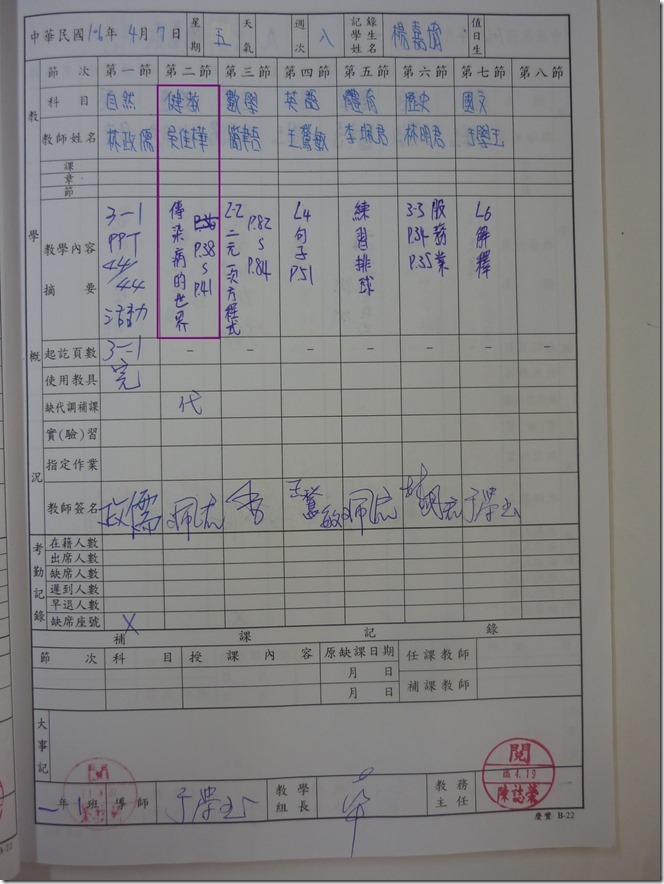 中華民國106年4月7日 星期 五 天氣 週次 八 記錄學生姓名 楊嘉 值日生
節次 第一節 第二節 第三節 第四節 第五節 第六節 第七節 第八節
教學概況
科目 自然 健教 數學 英語 體育 歷史 國文
教師姓名 林政儒 吳佳樺 簡聿吾 王鶯敏 李珮君 林明君 于學玉
課
章
節
教學內容摘要
3-1 PPT 44/44 活動
傳染病的世界 P.38 S P.41
2-2 二元一次方程式 P.82 S P.84
L4 句子 P.51
練習排球
3-3 服務業 P.34 P.35
L6 解釋
起訖頁數 3-1 – – – – – – –
使用教具 完
缺代調補課 代
實(驗)習
指定作業
教師簽名 政儒 王鶯敏 于學玉
考勤記錄
在籍人數
出席人數
缺席人數
遲到人數
早退人數
缺席座號 X
補課記錄
節次 科目 授課內容 原缺課日期 任課教師
月 日
月 日 補課教師
大事記
一年1班導師 于學玉 教學組長 教務主任
閱
06.4.19
陳誌榮
慶豐 B-22
B-22